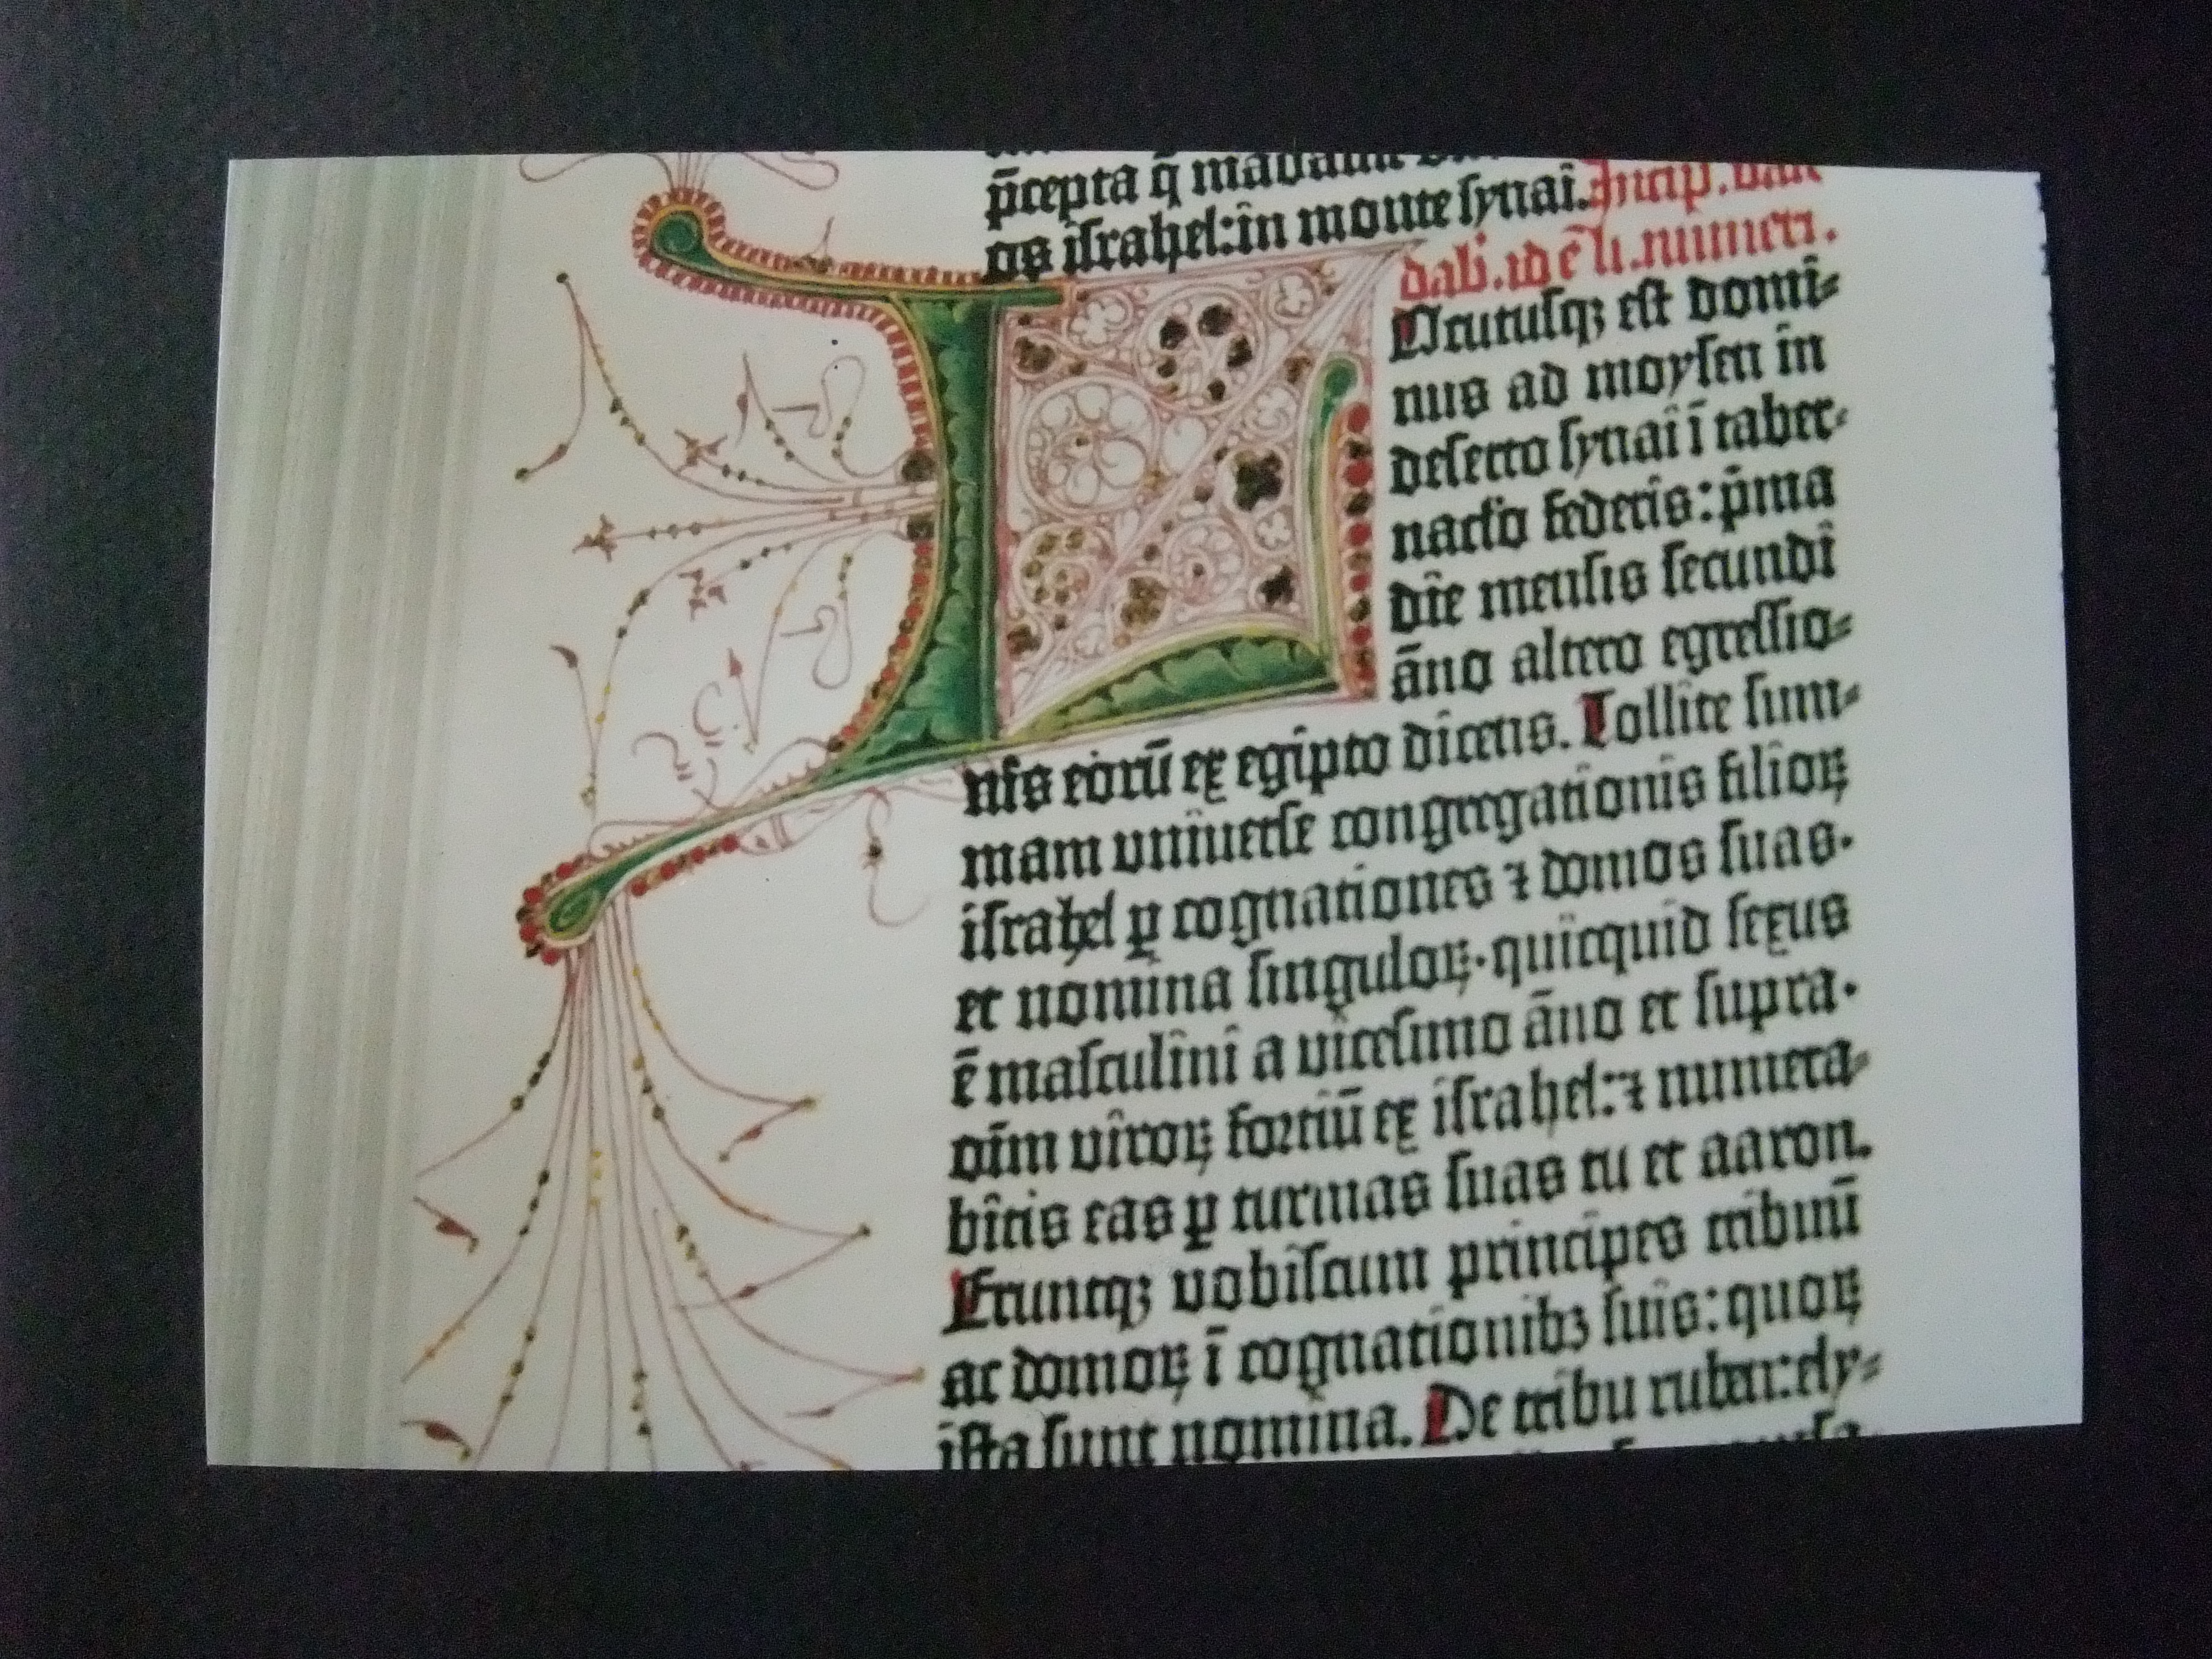 p̄cepta q̄ mādauit
os iſrahel: in monte ſynai. Incip.
dab̄. id ē li. numeri.
LOcutuſqꝫ eſt domi⸗
nus ad moyſen in
deſerto ſynai ī taber⸗
nac̄lo federis: p̄ma
die menſis ſecundi
āno altero egreſſio⸗
nis eorū ex egipto dicens. Tollite ſum⸗
mam vniuerſe congregationis filioꝝ
iſrahel ꝑ cognationes ⁊ domos ſuas.
et nomina ſinguloꝝ. quicquid ſexus
ē maſculini a viceſimo āno et ſupra.
oīm viroꝝ fortiū ex iſrahel: ⁊ numera⸗
bitis eas ꝑ turmas ſuas tu et aaron.
Eruntqꝫ vobiſcum principes tribuū
ac domoꝝ ī cognationibꝫ ſuis: quoꝝ
iſta ſunt nomina. De tribu ruben: ely⸗